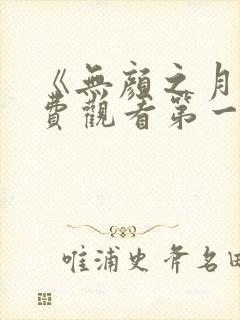 《無顏之月
費觀看第一
唯浦史斧名田